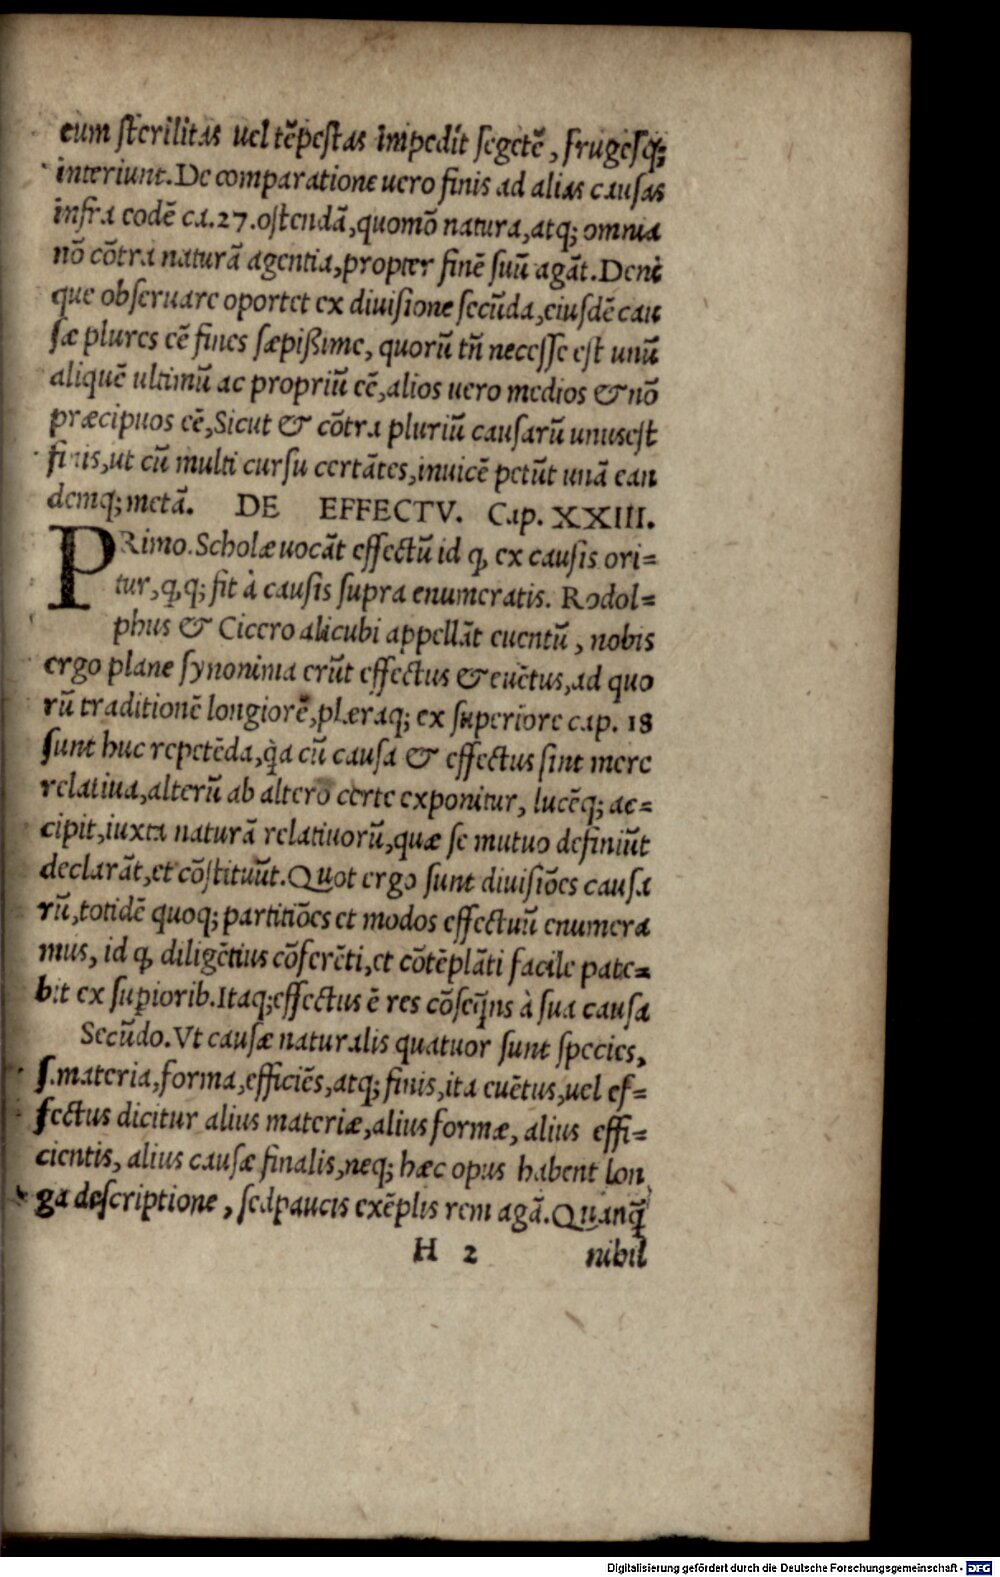 cum sterilitas uel tẽpestas impedit segetẽ, frugesq;
interiunt. De comparatione uero finis ad alias causas
infra eodẽ ca. 27. ostendã, quomõ natura, atq; omnia
nõ cõtra naturã agentia, propter finẽ suũ agãt. Deni
que obseruare oportet ex diuisione secũda, eiusdẽ cau
sæ plures eẽ fines sæpißime, quorũ tñ necesse est unũ
aliquẽ ultimũ ac propriũ eẽ, alios uero medios & nõ
præcipuos eẽ, Sicut & cõtra pluriũ causarũ unus est
finis, ut cũ multi cursu certãtes, inuicẽ petũt unã ean
demq; metã. DE EFFECTV. Cap. XXIII.
PRimo. Scholæ uocãt effectũ id ꝙ ex causis ori=
tur, ꝙq; fit à causis supra enumeratis. Rodol=
phus & Cicero alicubi appellãt euentũ, nobis
ergo plane synonima erũt effectus & euẽtus, ad quo
rũ traditionẽ longiorẽ, plæraq; ex superiore cap. 18
sunt huc repetẽda, q̀a cũ causa & effectus sint mere
relatiua, alterũ ab altero certe exponitur, lucẽq; ac=
cipit, iuxta naturã relatiuorũ, quæ se mutuo definiũt
declarãt, et cõstituũt. Quot ergo sunt diuisiões causa
rũ, totidẽ quoq; partitiões et modos effectuũ enumera
mus, id ꝙ diligẽtius cõferẽti, et cõtẽplãti facile pate=
bit ex suꝑiorib. Itaq; effectus ẽ res cõseq̃ns à sua causa
Secũdo. Vt causæ naturalis quatuor sunt species,
s. materia, forma, efficiẽs, atq; finis, ita euẽtus, uel ef=
fectus dicitur alius materiæ, alius formæ, alius effi=
cientis, alius causæ finalis, neq; hæc opus habent lon
ga descriptione, sed paucis exẽplis rem agã. Quanq̃
H 2 nihil
Digitalisierung gefördert durch die Deutsche Forschungsgemeinschaft - DFG